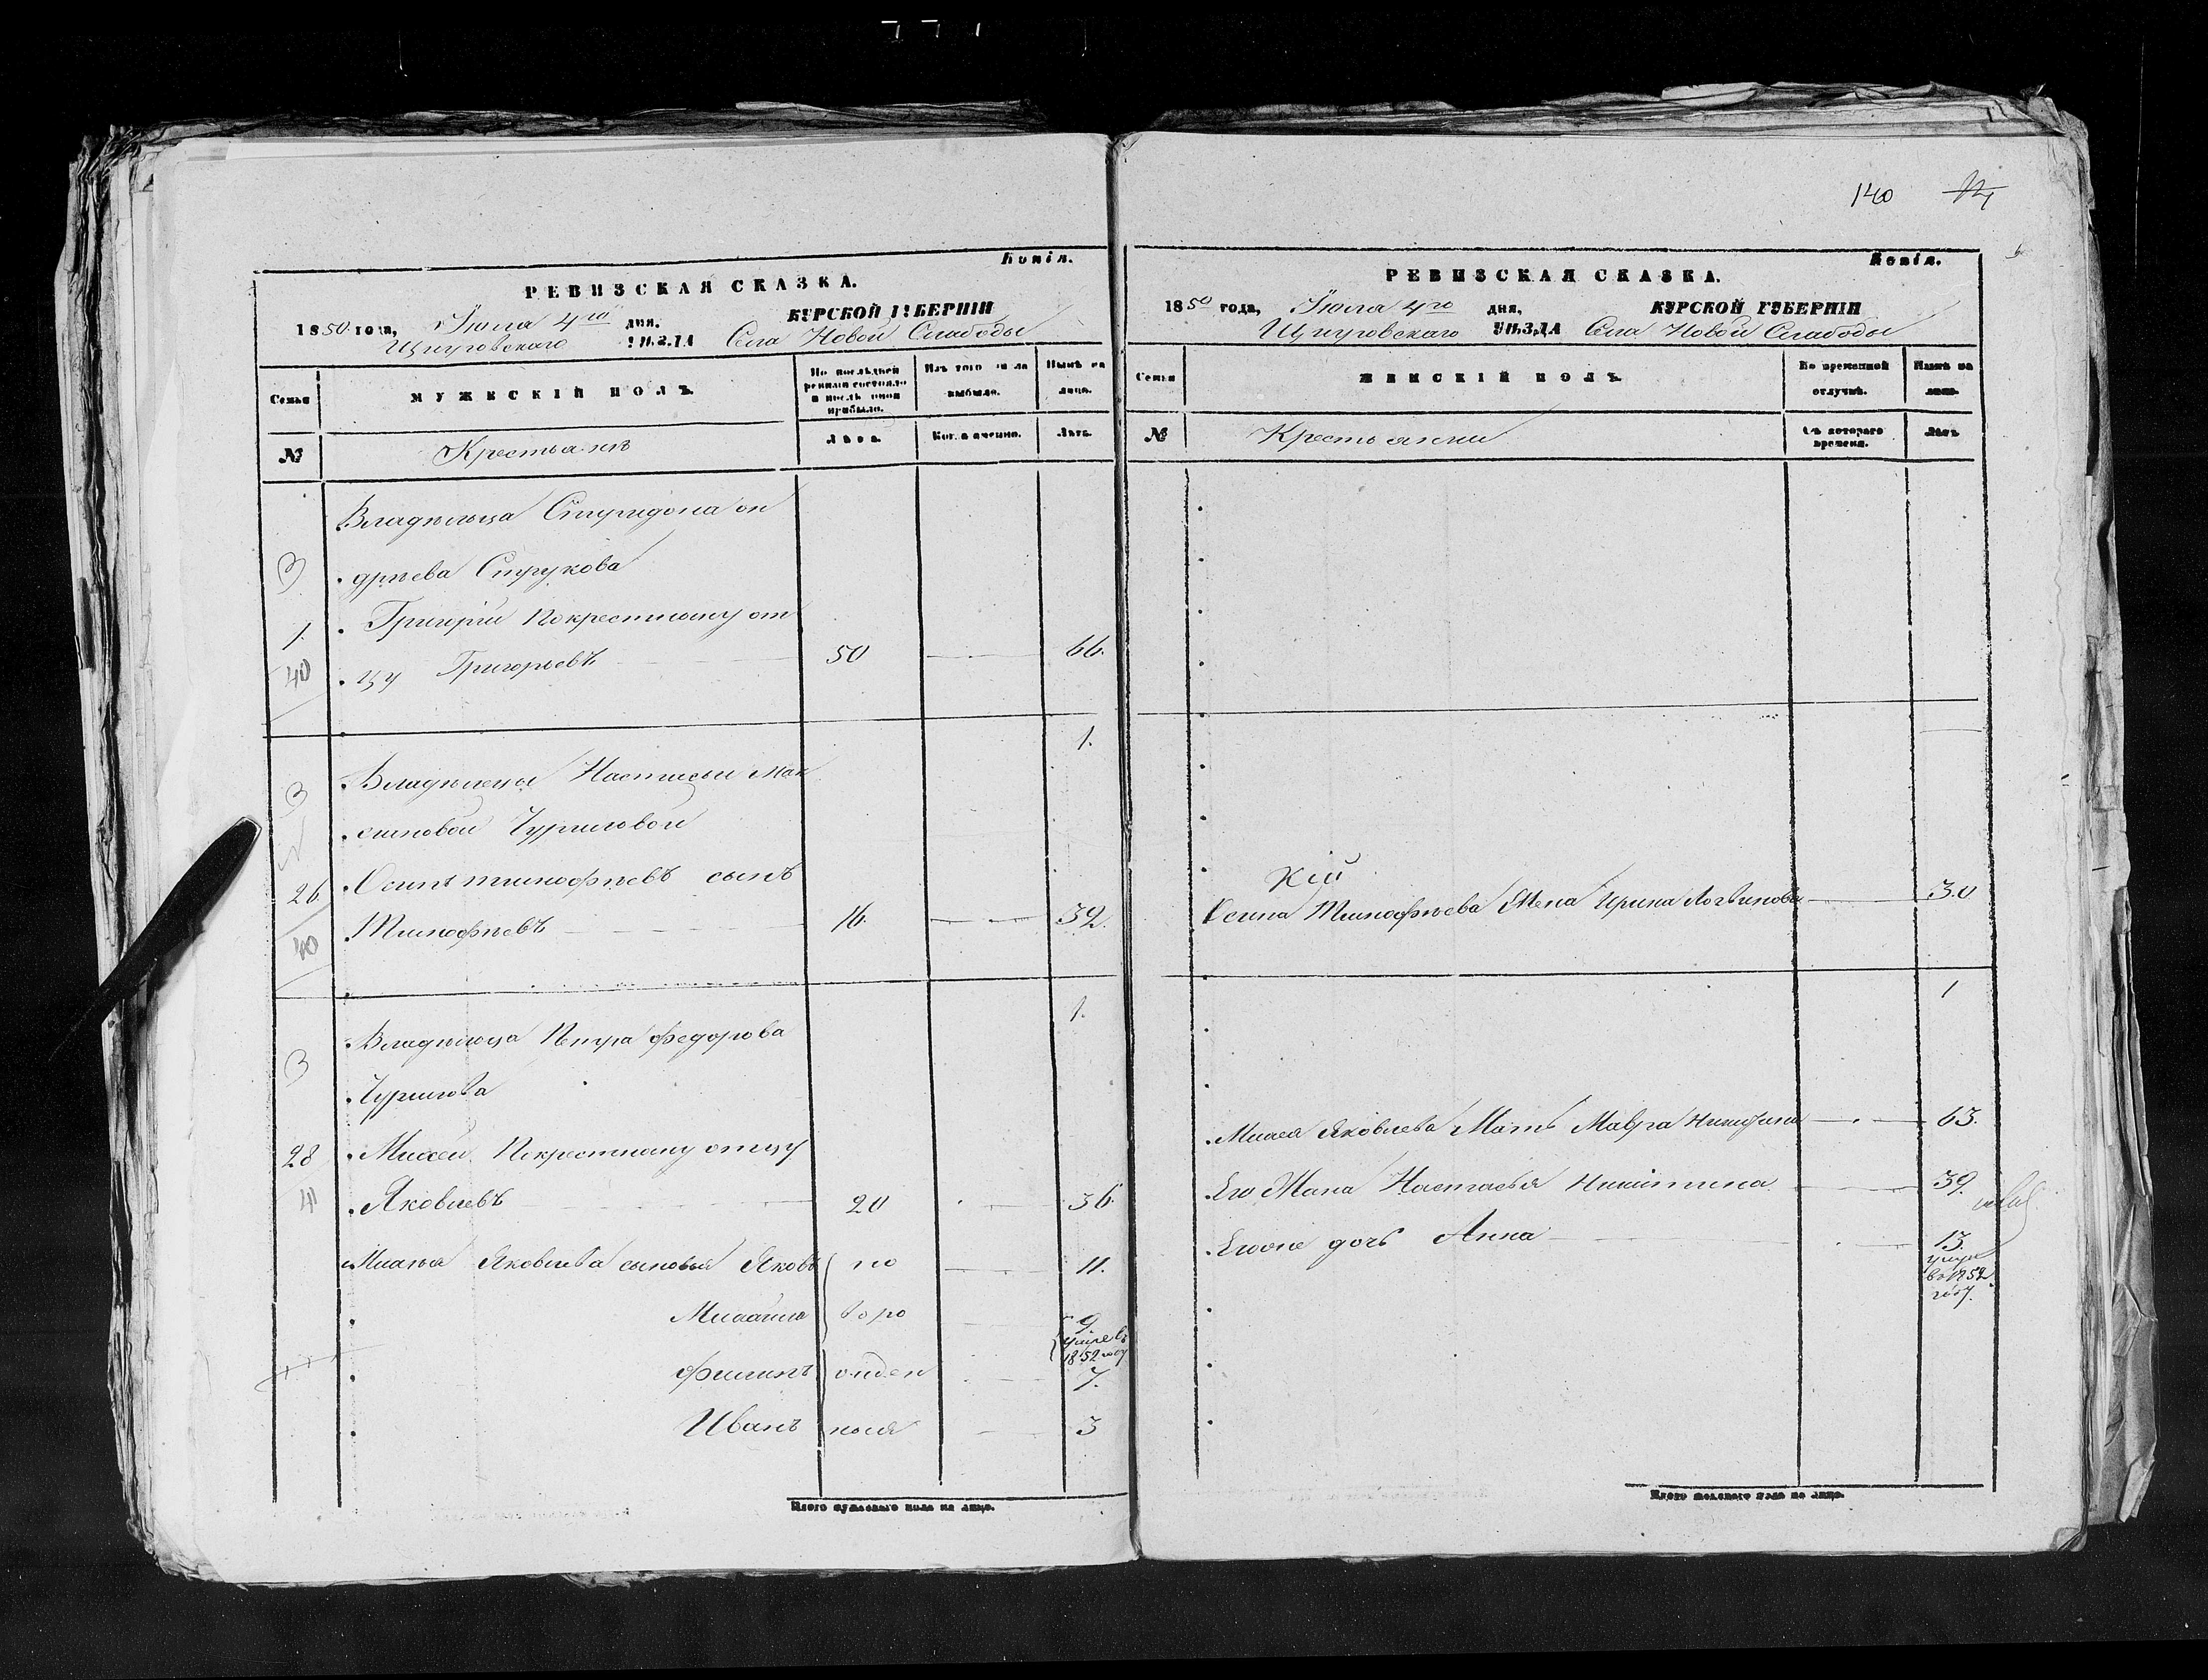 Копія.
РЕВИЗСКАЯ СКАЗКА.
1850 года, Іюля 4го дня. КУРСКОЙ ГУБЕРНІИ
Щигровскаго УѢЗДА Села Новой Слабоды
Семьи
МУЖЕСКІЙ ПОЛЪ.
По послѣдней ревизіи состояло и послѣ оной прибыло.
Изъ того числа выбыло.
Нынѣ на лицо.
№
Крестьянъ
Лѣта.
Когда именно.
Лѣта.
Владельца Спиридона он
3 дреева Струкова
1. Григорій по крестному от
40 цу Григорьевъ 50 66.
1.
Владелецы Настасьи Мак
3 симовой Чуриловой
26 Осипъ тимофѣевъ сынъ
40 Тимофѣевъ 16. 32.
1.
Владельца Петра Федорова
3 Чурилова
28 Михей по крестному отцу
41 Яковлевъ 20 36.
Яковлева сыновья Яковъ по 11.
Михайла ) вторе 9
умре въ
1852 году
Филипъ 7.
Иванъ 3
Итого мужескаго пола на лицо.
140
Копія.
РЕВИЗСКАЯ СКАЗКА.
1850 года, Іюля 4го дня, КУРСКОЙ ГУБЕРНІИ
Щигровскаго УѢЗДА Села Новой Слабоды
Семьи
ЖЕНСКІЙ ПОЛЪ.
Во временной отлучкѣ.
Нынѣ на лицо.
№
Крестьянки
Съ котораго времени.
Лѣтъ
Осипа Тимофѣева Жена Ирина Логвинова 30
1
Михея Яковлева Мать Мавра 63.
Его Жена Настасья Никитина 39.
Егоже дочь Анна 13.
умре
въ 1852
году.
Итого женскаго пола на лицо.